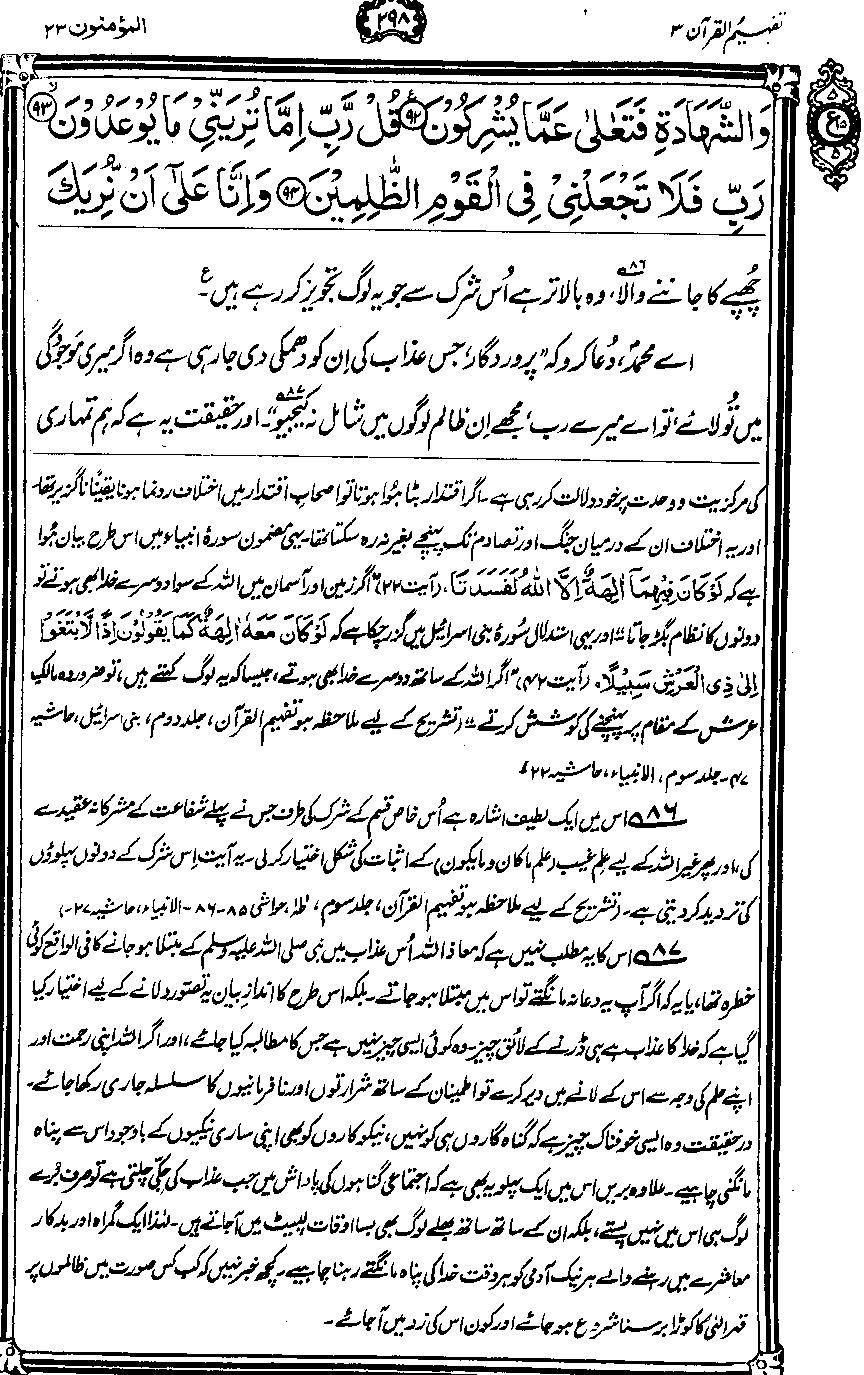 تفہیم القرآن ۳
۲۹۸
المؤمنون ۲۳
وَالشَّهَادَةِ فَتَعٰلٰى عَمَّا يُشْرِكُوْنَ ﴿۹۲﴾ قُلْ رَّبِّ اِمَّا تُرِيَنِّيْ مَا يُوْعَدُوْنَ ﴿۹۳﴾
رَبِّ فَلَا تَجْعَلْنِيْ فِي الْقَوْمِ الظّٰلِمِيْنَ ﴿۹۴﴾ وَاِنَّا عَلٰٓى اَنْ نُّرِيَكَ
۵
ع ۱۵
۵
چُھپے کا جاننے والا،۸۶ وہ بالاتر ہے اُس شرک سے جو یہ لوگ تجویز کر رہے ہیں۔ ع
اے محمدؐ، دُعا کرو کہ ”پروردگار، جس عذاب کی اِن کو دھمکی دی جا رہی ہے وہ اگر میری موجودگی
میں تُو لائے، تو اے میرے رب، مجھے اِن ظالم لوگوں میں شامل نہ کیجیو۸۷“۔ اور حقیقت یہ ہے کہ ہم تمہاری
کی مرکزیت و وحدت پر خود دلالت کر رہی ہے۔ اگر اقتدار بٹا ہُوا ہوتا تو اصحابِ اقتدار میں اختلاف رونما ہونا یقیناً ناگزیر تھا۔
اور یہ اختلاف ان کے درمیان جنگ اور تصادم تک پہنچے بغیر نہ رہ سکتا تھا۔ یہی مضمون سورۂ انبیاء میں اس طرح بیان ہُوا
ہے کہ لَوْ كَانَ فِيْهِمَآ اٰلِهَةٌ اِلَّا اللّٰهُ لَفَسَدَتَا، (آیت ۲۲) ”اگر زمین اور آسمان میں اللہ کے سوا دوسرے خدا بھی ہوتے تو
دونوں کا نظام بگڑ جاتا“ اور یہی استدلال سورۂ بنی اسرائیل میں گزر چکا ہے کہ لَوْ كَانَ مَعَهٗٓ اٰلِهَةٌ كَمَا يَقُوْلُوْنَ اِذًا لَّابْتَغَوْا
اِلٰى ذِي الْعَرْشِ سَبِيْلًا۔ (آیت ۴۲) ”اگر اللہ کے ساتھ دوسرے خدا بھی ہوتے، جیسا کہ یہ لوگ کہتے ہیں، تو ضرور وہ مالکِ
عرش کے مقام پر پہنچنے کی کوشش کرتے“ (تشریح کے لیے ملاحظہ ہو تفہیم القرآن، جلد دوم، بنی اسرائیل، حاشیہ
۴۷۔ جلد سوم، الانبیاء، حاشیہ ۲۲)
۸۶ اس میں ایک لطیف اشارہ ہے اُس خاص قسم کے شرک کی طرف جس نے پہلے شفاعت کے مشرکانہ عقیدے
کی، اور پھر غیر اللہ کے لیے علم غیب (علم ماکان و مایکون) کے اثبات کی شکل اختیار کر لی۔ یہ آیت اِس شرک کے دونوں پہلوؤں
کی تردید کر دیتی ہے۔ (تشریح کے لیے ملاحظہ ہو تفہیم القرآن، جلد سوم، طٰہٰ، حواشی ۸۵-۸۶۔ الانبیاء، حاشیہ ۲۷-)
۸۷ اس کا یہ مطلب نہیں ہے کہ معاذ اللہ اُس عذاب میں نبی صلی اللہ علیہ وسلم کے مبتلا ہو جانے کا فی الواقع کوئی
خطرہ تھا، یا یہ کہ اگر آپ یہ دعا نہ مانگتے تو اس میں مبتلا ہو جاتے۔ بلکہ اس طرح کا اندازِ بیان یہ تصور دلانے کے لیے اختیار کیا
گیا ہے کہ خدا کا عذاب ہے ہی ڈرنے کے لائق چیز۔ وہ کوئی ایسی چیز نہیں ہے جس کا مطالبہ کیا جائے، اور اگر اللہ اپنی رحمت اور
اپنے حلم کی وجہ سے اس کے لانے میں دیر کرے تو اطمینان کے ساتھ شرارتوں اور نافرمانیوں کا سلسلہ جاری رکھا جائے۔
درحقیقت وہ ایسی خوفناک چیز ہے کہ گناہ گاروں ہی کو نہیں، نیکوکاروں کو بھی اپنی ساری نیکیوں کے باوجود اس سے پناہ
مانگنی چاہیے۔ علاوہ بریں اس میں ایک پہلو یہ بھی ہے کہ اجتماعی گناہوں کی پاداش میں جب عذاب کی چکی چلتی ہے تو صرف بُرے
لوگ ہی اس میں نہیں پستے، بلکہ ان کے ساتھ ساتھ بھلے لوگ بھی بسا اوقات لپیٹ میں آ جاتے ہیں۔ لہٰذا ایک گمراہ اور بدکار
معاشرے میں رہنے والے ہر نیک آدمی کو ہر وقت خدا کی پناہ مانگتے رہنا چاہیے۔ کچھ خبر نہیں کہ کب کس صورت میں ظالموں پر
قہرِ الٰہی کا کوڑا برسنا شروع ہو جائے اور کون اس کی زد میں آ جائے۔